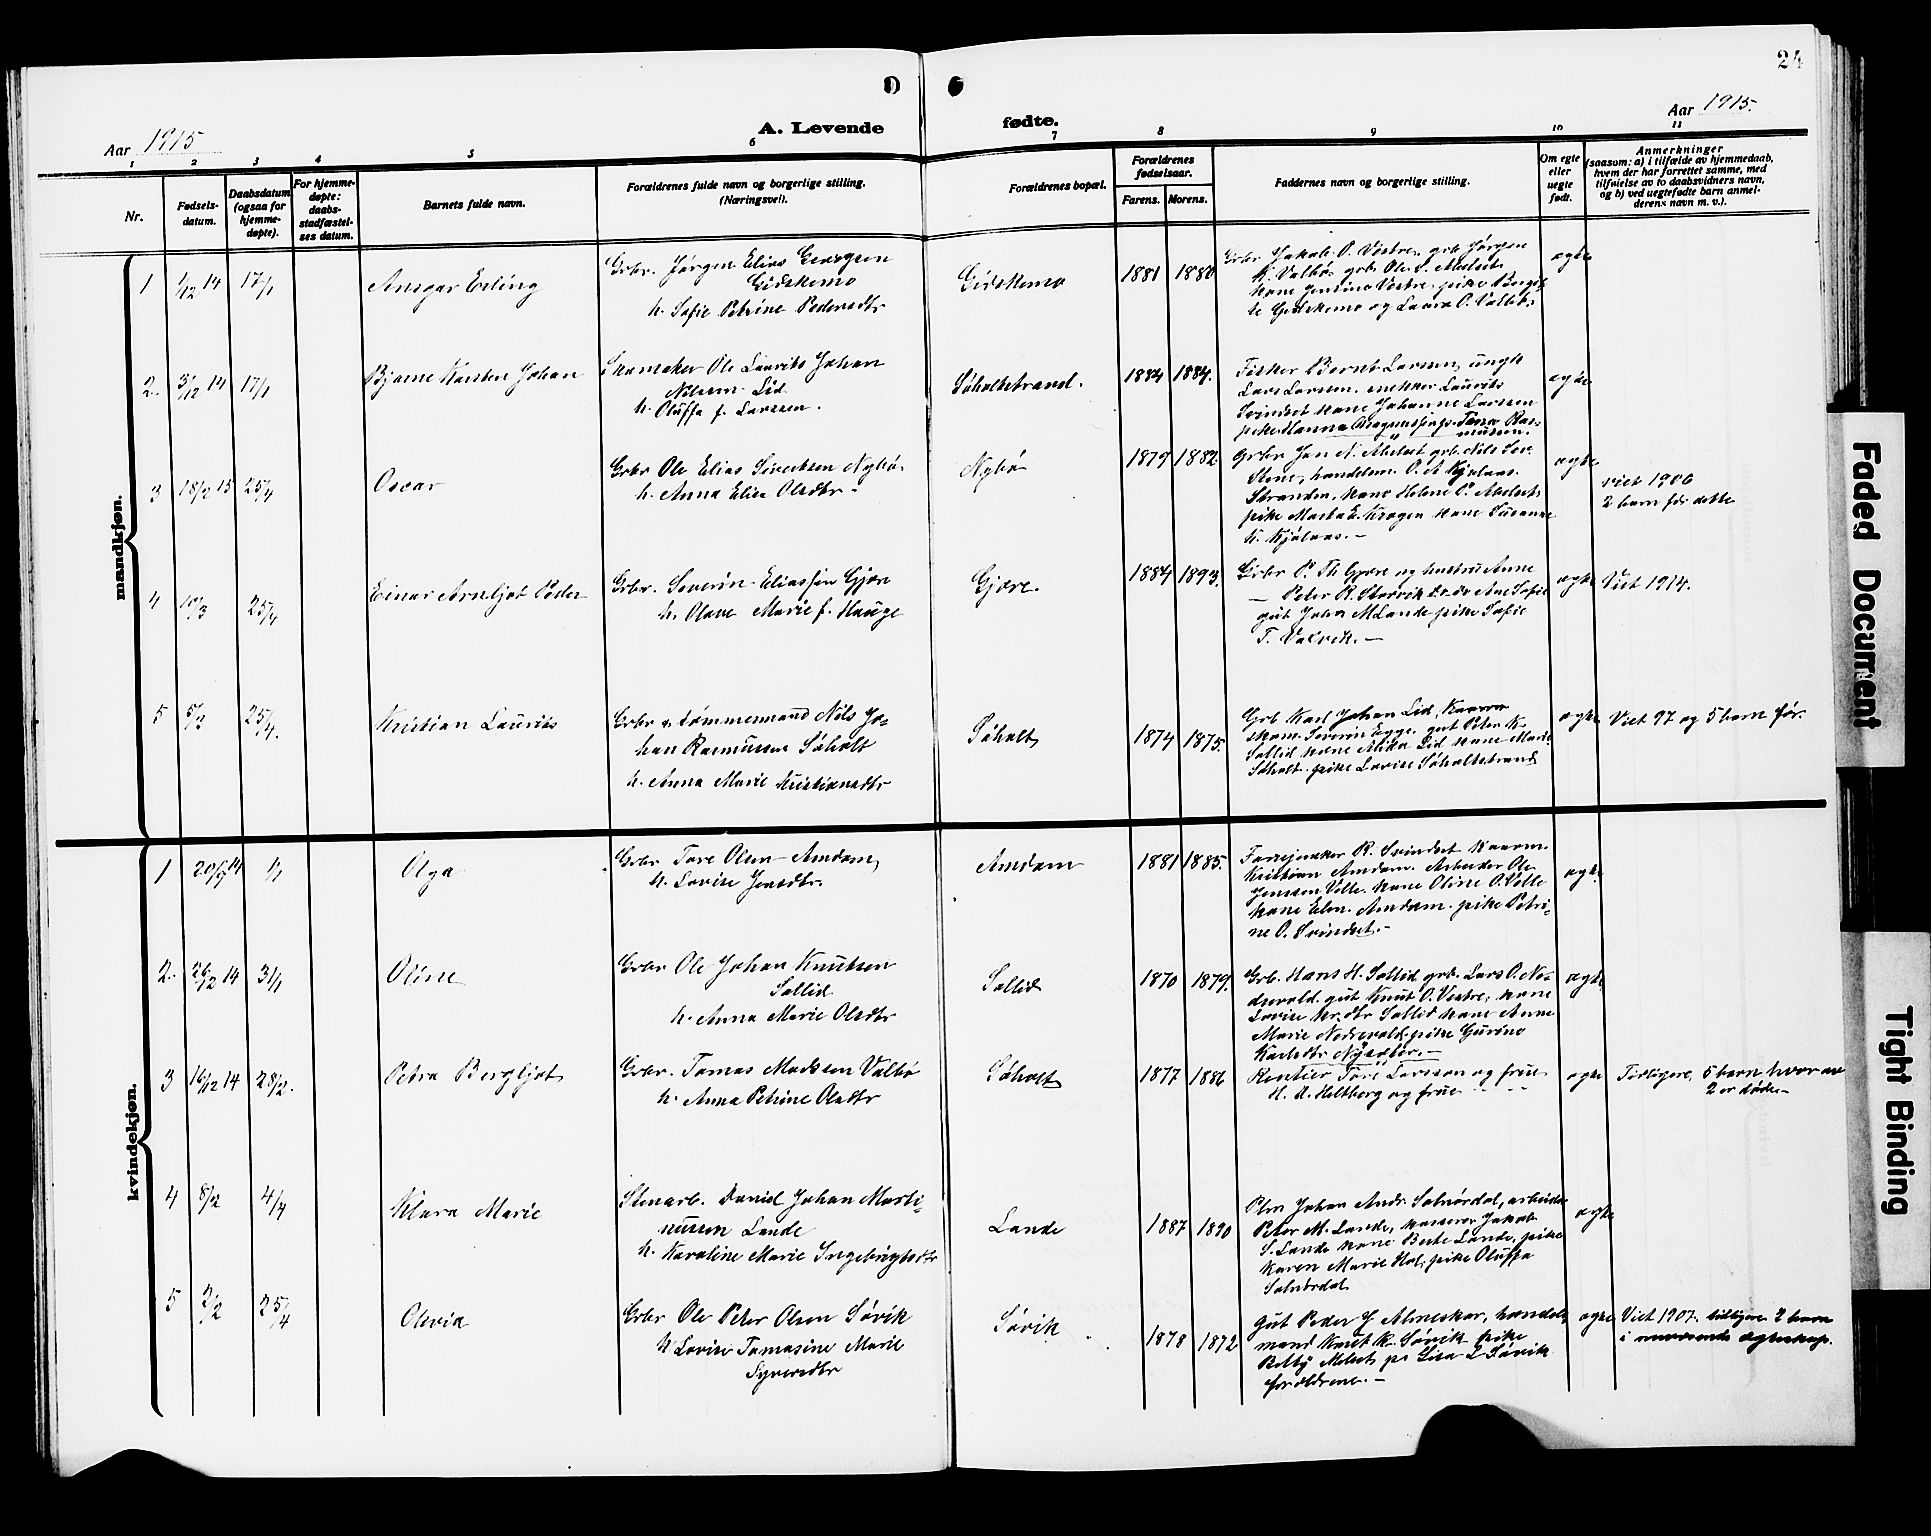 24
Aar 1915
A. Levende
fødte.
Aar 1915.
1 2 3 4 5 6 7 8 9 10 11
Nr.
Fødsels-
datum.
Daabsdatum
(ogsaa for
hjemme-
døpte).
For hjemme-
døpte:
daabs-
stadfæstel-
ses datum.
Barnets fulde navn.
Forældrenes fulde navn og borgerlige stilling.
(Næringsvei).
Forældrenes bopæl.
Forældrenes
fødselsaar.
Farens. Morens.
Faddernes navn og borgerlige stilling.
Om egte
eller
uegte
født.
Anmerkninger
(saasom: a) i tilfælde av hjemmedaab,
hvem der har forrettet samme, med
tilføielse av to daabsvidners navn,
og b) ved uegtefødte barn anmel-
derens navn m. v.).
mandkjøn.
1 1/12 14 17/1 Ansgar Erling
Grbr. Jørgen Elias Georgsen
Gidskemo
h. Sofie Petrine Pedersdtr
Gidskemo 1881 1880
Grbr. Jakob O. Vestre, grb Jørgen
K. Valbø grb Ole L. Abelset
kone Jensine Vestre, pike Bergit-
te Gidskemo og Laura O. Valbø.
egte
2. 3/12 14 17/1 Bjarne Karsten Johan
Skomaker Ole Laurits Johan
Nilsen Lid
h. Oluffa f. Larssen.
Søholtstrand. 1884 1884.
Fisker Bernt Larsen, ungk
Lars Larsen. snekker Laurits
Svindset kone Johanne Larssen
pike Hanna
egte
3 18/2 15 25/4 Oscar
Grbr Ole Elias Sivertsen Nybø
h. Anna Elise Olsdtr.
Nybø 1879 1882
Grbr Jan N. Abelset grb. Nils
Stene, handelsm. O. A Kjølaas.
Stranden. kone Helene P. Abelset,
pike Marta E. Krogen kone Susanne
h. Kjølaas. -
egte
viet 1906
2 barn før dette
4 10/3 25/4 Einar Arnljot Peder
Grbr. Severin Eliassen Gjære
h. Olave Marie f. Hauge
Gjære. 1884 1893.
Grbr P. Th Gjære og hustru Anne
- Peter R. Storvik Ane Sofie
gut John M Lande pike Sofie
T. Valvik. -
egte
Viet 1914.
5 5/3 25/4. Kristian Laurits
Grbr & tømmermand Nils Jo-
han Rasmussen Søholt
h. Anna Marie Kristiansdtr
Søholt 1874 1875.
Grb Karl Johan Lid,
Severin Egge. gut Peter K.
Sollid kone Alida Lid kone Marie
Søholt. pike Lovise Søholtstrand
egte
Viet 97 og 5 barn før.
kvindekjøn.
1 20/9 14 1/1 Olga
Grbr Tore Olsen Amdam
h. Lovise Jensdtr.
Amdam 1881 1885.
R. Svindset
Kristian Amdam. Arbeider Ole
Jenssen Velle. kone Oline O. Velle
kone Elen. Amdam. pike Petri-
ne O. Svindset. -
egte
2. 26/12 14 31/1 Oline
Grbr Ole Johan Knutsen
Sollid
h. Anna Marie Olsdtr
Sollid 1870 1879.
Grb. Hans H. Sollid grb. Lars O. Ne-
drevold. gut Knut O. Vestre, kone
Lovise Kr. dtr Sollid kone Anne
Marie Nedrevold. pike Gurine
Karlsdtr Nysæter. -
egte
3 16/12 14 28/2. Petra Bergljot
Grbr. Tomas Madssen Valbø
h. Anna Petrine Olsdtr
Søholt 1877 1886
Rentier Tore Larsson og frue
H. A. Heltberg og frue
egte
Tidligere 5 barn hvorav
2 er døde. -
4 8/2 4/4 Klara Marie
Stenarb. Daniel Johan Marti-
nussen Lande
h. Karoline Marie Ingebrigtsdtr
Lande 1887 1890
Johan Andr. Solnørdal, arbeider
Peter M. Lande, kasserer Jakob
S. Lande kone Berte Lande, pike
Karen Marie Hol, pike Oluffa
Solnørdal
egte
5 2/2 25/4 Olevia
Grbr Ole Peter Olsen Søvik
h Lovise Tomasine Marie
Syversdtr
Søvik 1878 1872
Gut Peder J Almeskar, handels
mand Knut K. Søvik pike
Betty Abelset, pi Lisa L Søvik
forældrene. -
egte
Viet 1907. tidligere 2 barn
i nuværende egteskap.
Faded Document
Tight Binding